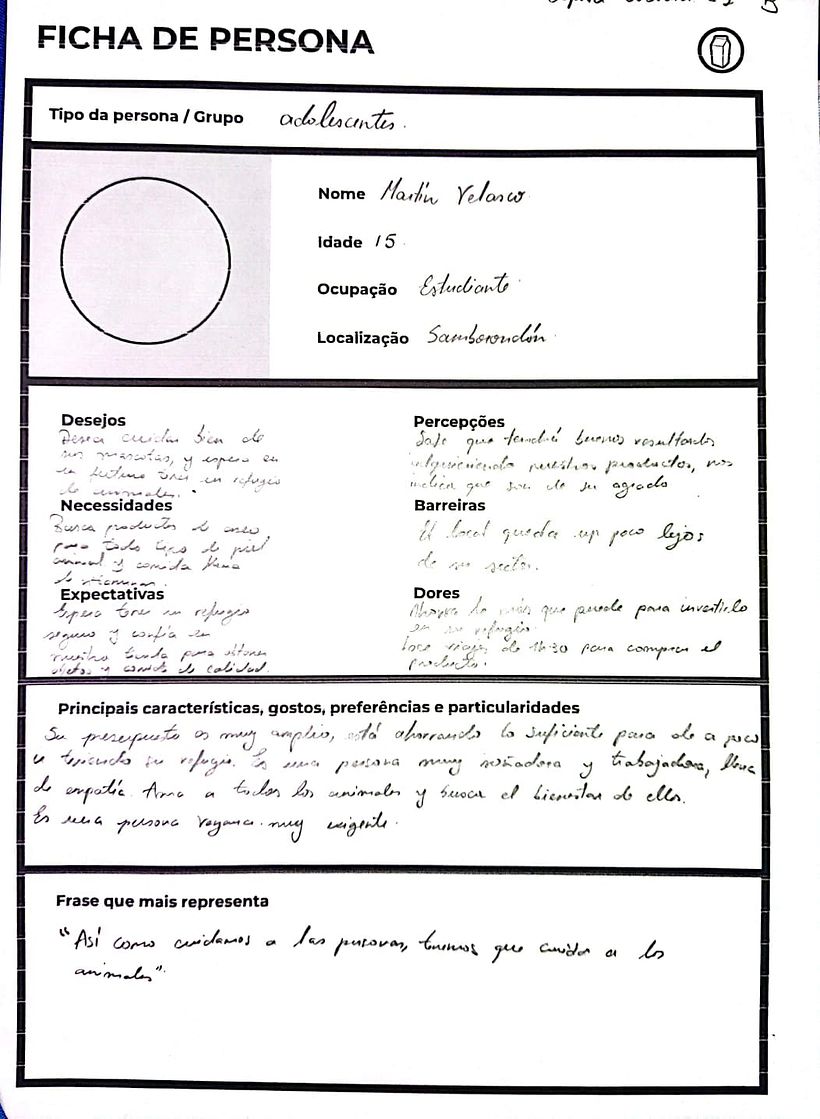 FICHA DE PERSONA
Tipo da persona / Grupo adolescentes.
Nome Martín Velasco
Idade 15
Ocupação Estudiante
Localização Samborondón
Desejos
Desea cuidar bien de
sus mascotas, y espera en
un futuro tener un refugio
de animales.
Necessidades
Busca productos de aseo
para todo tipo de piel
animal y comida llena
de vitaminas.
Expectativas
Espera tener un refugio
seguro y confía en
nuestra tienda para obtener
y comida de calidad.
Percepções
Sabe que tendrá buenos resultados
adquiriendo nuestros productos, nos
indica que son de su agrado
Barreiras
El local queda un poco lejos
de su sector.
Dores
Ahorra lo más que puede para invertirlo
en su refugio
hace viajes de 1h30 para comprar el
producto.
Principais características, gostos, preferências e particularidades
Su presupuesto es muy amplio, está ahorrando lo suficiente para de a poco
ir teniendo su refugio. Es una persona muy soñadora y trabajadora, llena
de empatía. Ama a todos los animales y busca el bienestar de ellos.
Es una persona vegana muy exigente.
Frase que mais representa
"Así como cuidamos a las personas, tenemos que cuidar a los
animales".